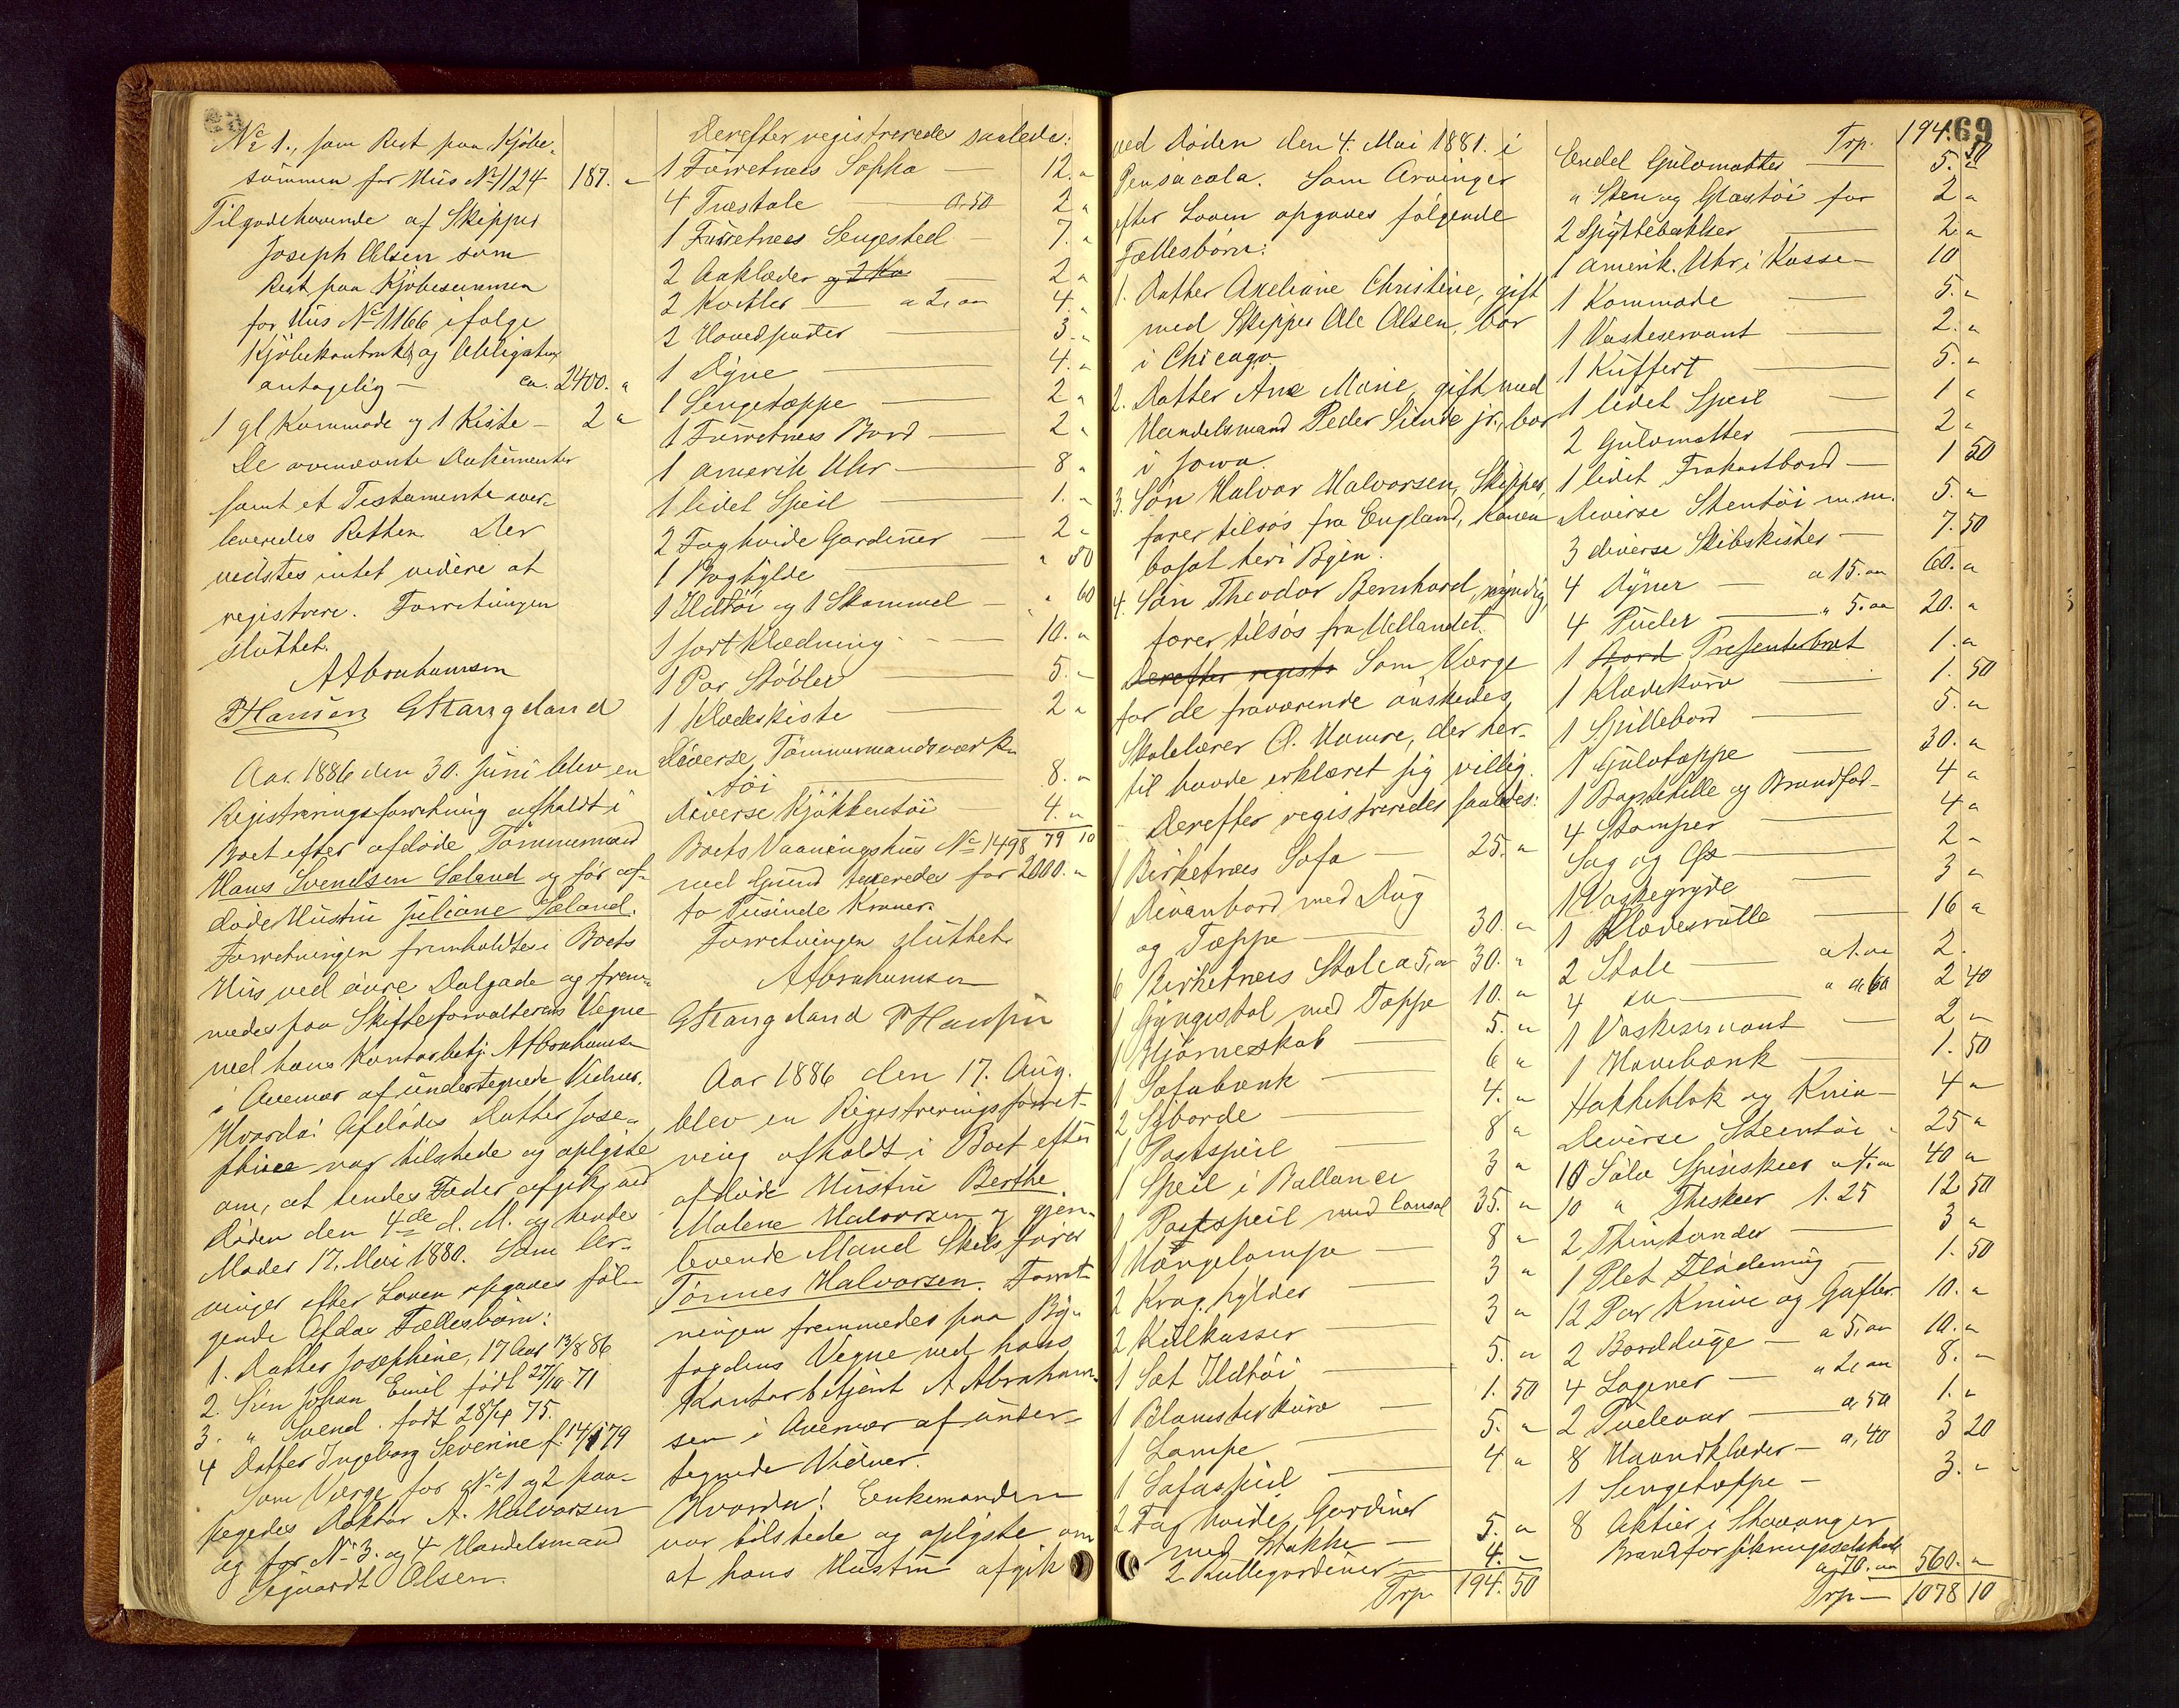 No 1., som Rest paa Kjøbe-
summen for Hus No 1124 187. "
Tilgodehavende af Skipper
Joseph Olsen som
Rest paa Kjøbesummen
for Hus No 1166 ifølge
Kjøbekontrakt og Obligation
antagelig — ca. 2400. "
1 gl Kommode og 1 Kiste — 2 "
De ovennævnte Dokumenter
samt et Testamente over-
leveredes Retten. Der
vidstes intet videre at
registrere. Forretningen
sluttet.
A Abrahamsen
P Hansen G Stangeland
Aar 1886 den 30. Juni blev en
Registreringsforretning afholdt i
Boet efter afdøde Tømmermand
Hans Svendsen Søland og før af-
døde Hustru Juliane Søland.
Forretningen fremholdtes i Boets
Hus ved øvre Dalgade og frem-
medes paa Skifteforvalterens Vegne
ved hans Kontorbetj. A Abrahamsen
i Overvær af undertegnede Vidner.
Hvorda! Afdødes Datter Jose-
phine var tilstede og oplyste
om, at hendes Fader afgik ved
Døden den 4de d. M. og hendes
Moder 17. Mai 1880. Som Ar-
vinger efter Loven opgaves føl-
gende Afdøs Fællesbørn:
1. Datter Josephine, 17 Aar 13/8 86
2. Søn Johan Emil født 27/10 71
3. " Svend født 28/4 75.
4 Datter Ingeborg Severine f. 14/1 79
Som Værge for No 1 og 2 paa-
pegedes Doktor A. Halvorsen
og for No 3. og 4 Handelsmand
Sigvardt Olsen.
Derefter registreredes saaledes:
1 Furretræs Sopha — 12. "
4 Træstole a 50 2 "
1 Furretræes Sengested 7. "
2 Aaklæder og 2 Ho 2 "
2 Kvitler — a 2, " 4. "
2 Hovedputer 3. "
1 Dyne — 4. "
1 Sengetæppe — 2 "
1 Furretræes Bord — 2 "
1 amerik Uhr — 8 "
1 lidet Speil — 1. "
2 Fag hvide Gardiner — 2 "
1 Boghylde — " 80
1 Ildtøi og 1 Skammel — " 60
1 sort Klædning — 10. "
1 Par Støvler 5. "
1 Klædeskiste — 2 "
Diverse Tømmermandsværk-
tøi — 8. "
Diverse Kjøkkentøi — 4. "
79 10
Boets Vaaningshus No 1498
med Grund taxeredes for 2000. "
to Tusinde Kroner.
Forretningen sluttet.
A Abrahamsen
G Stangeland P Hansen
Aar 1886 den 17. Aug.
blev en Registreringsforret-
ning afholdt i Boet efter
afdøde Hustru Berthe
Malene Halvorsen og gjen-
levende Mand Skibsfører
Tønnes Halvorsen. Forret-
ningen fremmedes paa By-
fogdens Vegne ved hans
Kontorbetjent A Abraham-
sen i Overvær af under-
tegnede Vidner.
Hvorda! Enkemanden
var tilstede og oplyste om
at hans Hustru afgik
ved Døden den 4. Mai 1881. i
Pensacola. Som Arvinger
efter Loven opgaves følgende
Fællesbørn:
1. Datter Axeliane Christine, gift
med Skipper Ole Olsen, bor
i Chicago
2. Datter Ane Marie, gift med
Handelsmand Peder Lende jr., bor
i Jowa.
3. Søn Halvor Halvorsen, Skipper,
farer tilsøs fra England, Konen
bosat her i Byen.
4. Søn Theodor Bernhard, myndig,
farer tilsøs fra Udlandet.
Derefter registr Som Værge
for de fraværende ønskedes
Skolelærer O. Hamre, der her-
til havde erklæret sig villig.
Derefter registreredes saaledes:
1 Birketræes Sofa — 25. "
1 Divanbord med Dug
og Tæppe — 30. "
6 Birketræes Stole a 5, " 30. "
1 Gyngestol med Tæppe 10. "
1 Hjørneskab — 5. "
1 Sofabænk — 6 "
2 Syborde — 4. "
1 Postspeil — 8 "
1 Speil i Ballance 3 "
1 Postspeil med Consol 35. "
1 Hængelampe — 8 "
2 Krog.hylder — 3 "
2 Kulkasser — 3 "
1 Sæt Ildtøi — 5. "
1 Blomsterkurv — 1. 50
1 Lampe — 5. "
1 Sofaspeil — 4 "
2 Fag hvide Gardiner
med Stokke — 5. "
2 Rullegardiner — 4. "
Trp 194. 50
69
Trp. 194. 50
Endel Gulvmatter — 5. "
" Sten og Glastøi for 2 "
2 Spyttebakker — 2. "
1 amerik. Uhr i Kasse — 10
1 Kommode — 5. "
1 Vaskeservant — 2. "
1 Kuffert — 5. "
1 lidet Speil — 1 "
2 Gulvmatter — 2 "
1 lidet Frokostbord — 1 50
Diverse Stentøi m.m. 5. "
3 diverse Skibskister — 7. 50
4 Dyner — a 15. " 60. "
4 Puder — " 5. " 20. "
1 Bord Presenterbret 1. "
1 Klædekurv — 1. 50
1 Spillebord — 5. "
1 Gulvtæppe — 30. "
1 Bogsehille og Brandsel- 4 "
4 Stamper — 4 "
Sag og Øx — 2 "
1 Vaskegryde — 3 "
1 Klædesrulle — 16 "
2 Stole — a 1. " 2.
4 do — " 60 2 40
1 Vaskeservant — 2 "
1 Havebænk — 1. 50
Hakkeblok og Kniv — 4 "
Diverse Steentøi 25 "
10 Sølv Spiseskeer a 4, " 40 "
10 " Theskeer 1. 25 12 50
2 Thinkander — 3 "
1 Plet Flødemug — 1. 50
12 Par Knive og Gafler 10. "
2 Bordduge — a 5, " 10. "
4 Lagener — " 2, " 8. "
2 Pudevaar — a, 50 1. "
8 Haandklæder — a, 40 3 20
1 Sengetæppe — 3. "
8 Aktier i Stavanger
Brandforsikringsselskab
a 70. " 560. "
Trp — 1078 10